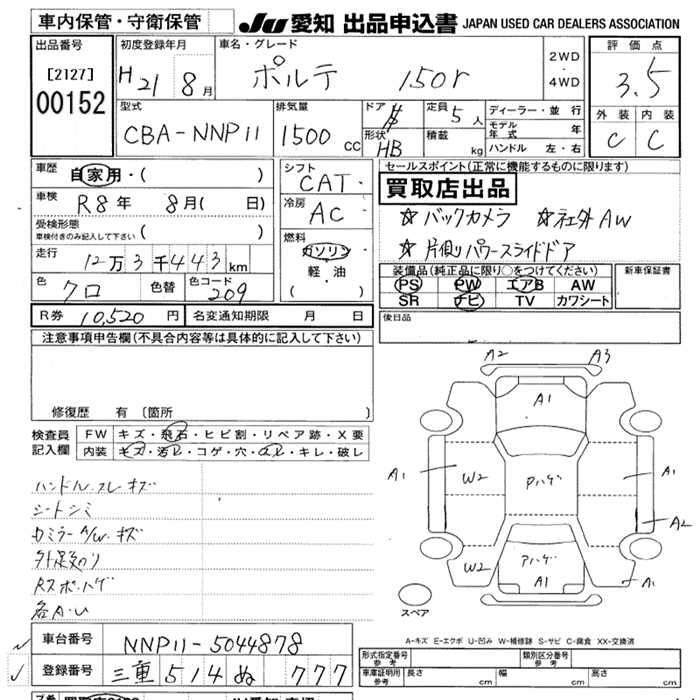 車内保管・守衛保管
JU 愛知 出品申込書 JAPAN USED CAR DEALERS ASSOCIATION
出品番号
[2127]
00152
初度登録年月
H 21 8月
車名・グレード
ポルテ 150r
2WD
・
4WD
評価点
3.5
外装 内装
C C
型式
CBA-NNP11
排気量
1500 cc
ドア
形状
HB
定員 5人
積載 kg
ディーラー・並行
モデル年式 年
ハンドル 左・右
車歴
自家用・( )
車検
R8年 8月( 日)
受検形態
車検付きのみ記入して下さい ( )
走行
12万3千443km
色
クロ
色替
色コード
209
シフト
CAT
冷房
AC
燃料
ガソリン
軽・油
( )
セールスポイント(正常に機能するものに限ります)
買取店出品
☆バックカメラ ☆社外AW
☆片側パワースライドドア
装備品(純正品に限り○をつけてください)
PS PW エアB AW
SR ナビ TV カワシート
新車保証書
R券 10,520円
名変通知期限 月 日
後日品
注意事項申告欄(不具合内容等は具体的に記入して下さい)
修復歴 有 〔箇所 〕
検査員記入欄
FW キズ・飛石・ヒビ割・リペア跡・X要
内装 キズ・汚レ・コゲ・穴・スレ・キレ・破レ
ハンドルスレキズ
シートシミ
カミラーA/Wキズ
Rスポハゲ
各A・U
A2 A3
A1
A1 W2 Pハゲ A1
A2
W2 Pハゲ
A1
A1
スペア
A-キズ E-エクボ U-凹み W-補修跡 S-サビ C-腐食 XX-交換済
車台番号
NNP11-5044878
登録番号
三重 514 ぬ 777
形式指定番号
参考
類別区分番号
参考
車庫証明用
参考
長さ cm
幅 cm
高さ cm